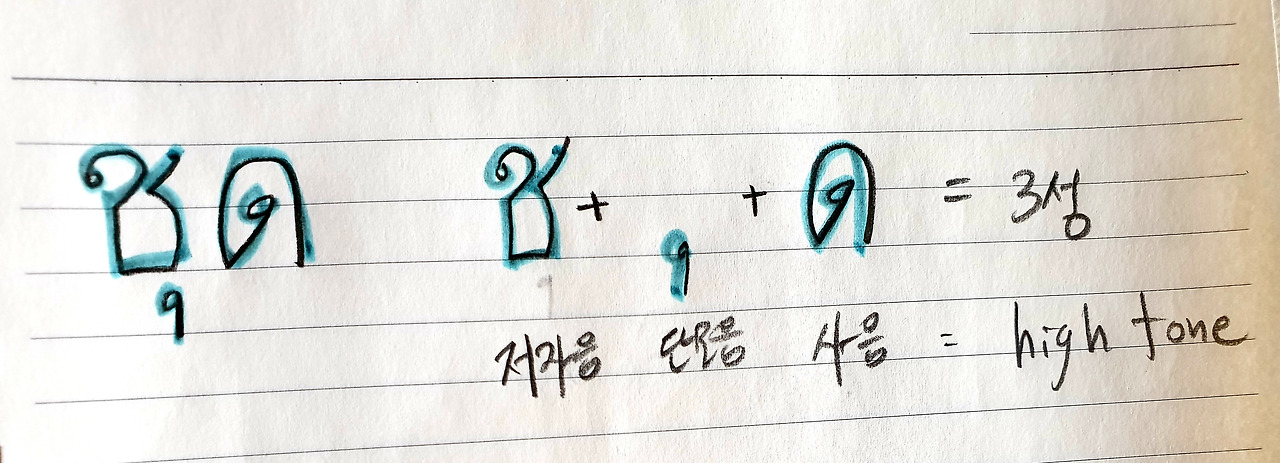 ชุด ช + ุ + ด = 3성
저자음 단모음 사음 = high tone